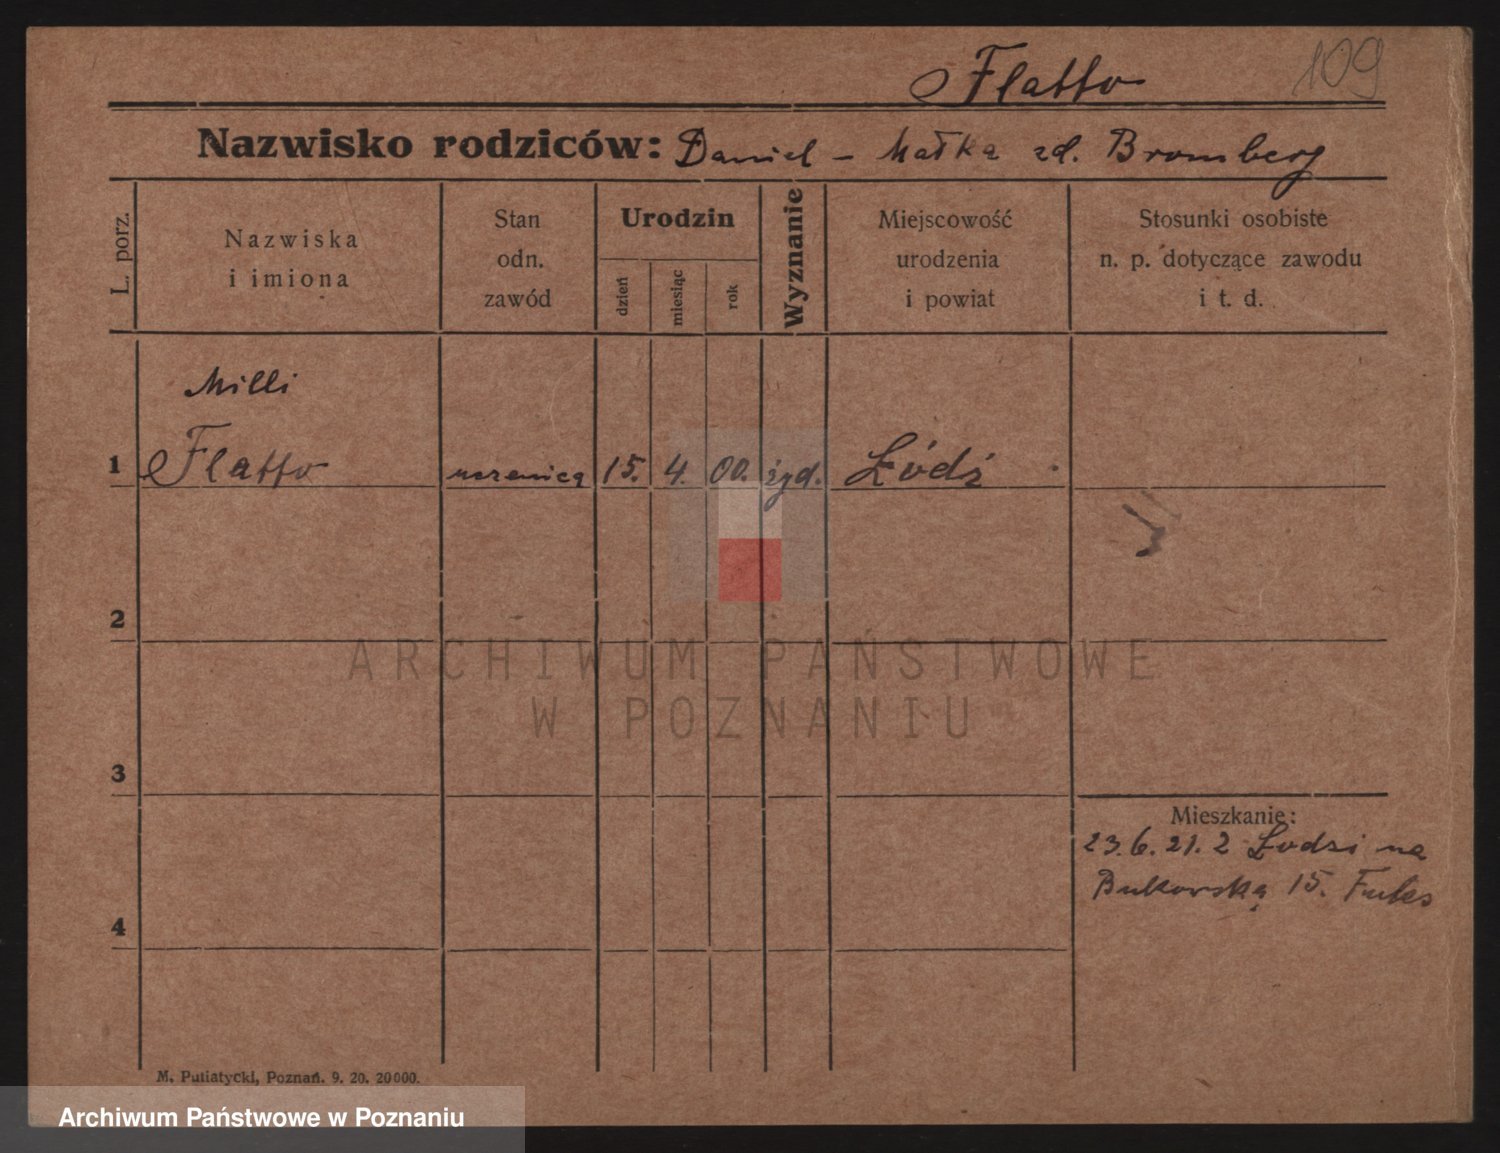 109
Flatto
Nazwisko rodziców: Daniel – Małka zd. Bromberg
L. porz.
Nazwiska
i imiona
Stan
odn.
zawód
Urodzin
dzień
miesiąc
rok
Wyznanie
Miejscowość
urodzenia
i powiat
Stosunki osobiste
n. p. dotyczące zawodu
i t. d.
Milli
1 Flatto uczenica 15. 4. 00. żyd. Łódź
2
ARCHIWUM PAŃSTWOWE
W POZNANIU
3
Mieszkanie:
23.6.21. z Łodzi na
Bukowską 15. Fuks
4
M. Putiatycki, Poznań. 9. 20. 20000.
Archiwum Państwowe w Poznaniu